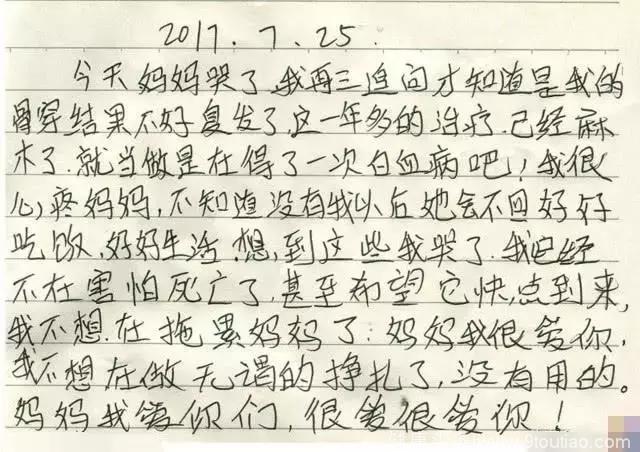 2017.7.25.
今天妈妈哭了.我再三追问才知道是我的
骨穿结果不好复发了.这一年多的治疗.已经麻
木了.就当做是在得了一次白血病吧!我很
心疼妈妈,不知道没有我以后她会不会好好
吃饭,好好生活.想,到这些我哭了.我已经
不在害怕死亡了.甚至希望它快点到来,
我不想.在拖累妈妈了.妈妈我很爱你.
我不想在做无谓的挣扎了,没有用的。
妈妈我爱你们,很爱很爱你!
www.9toutiao.com